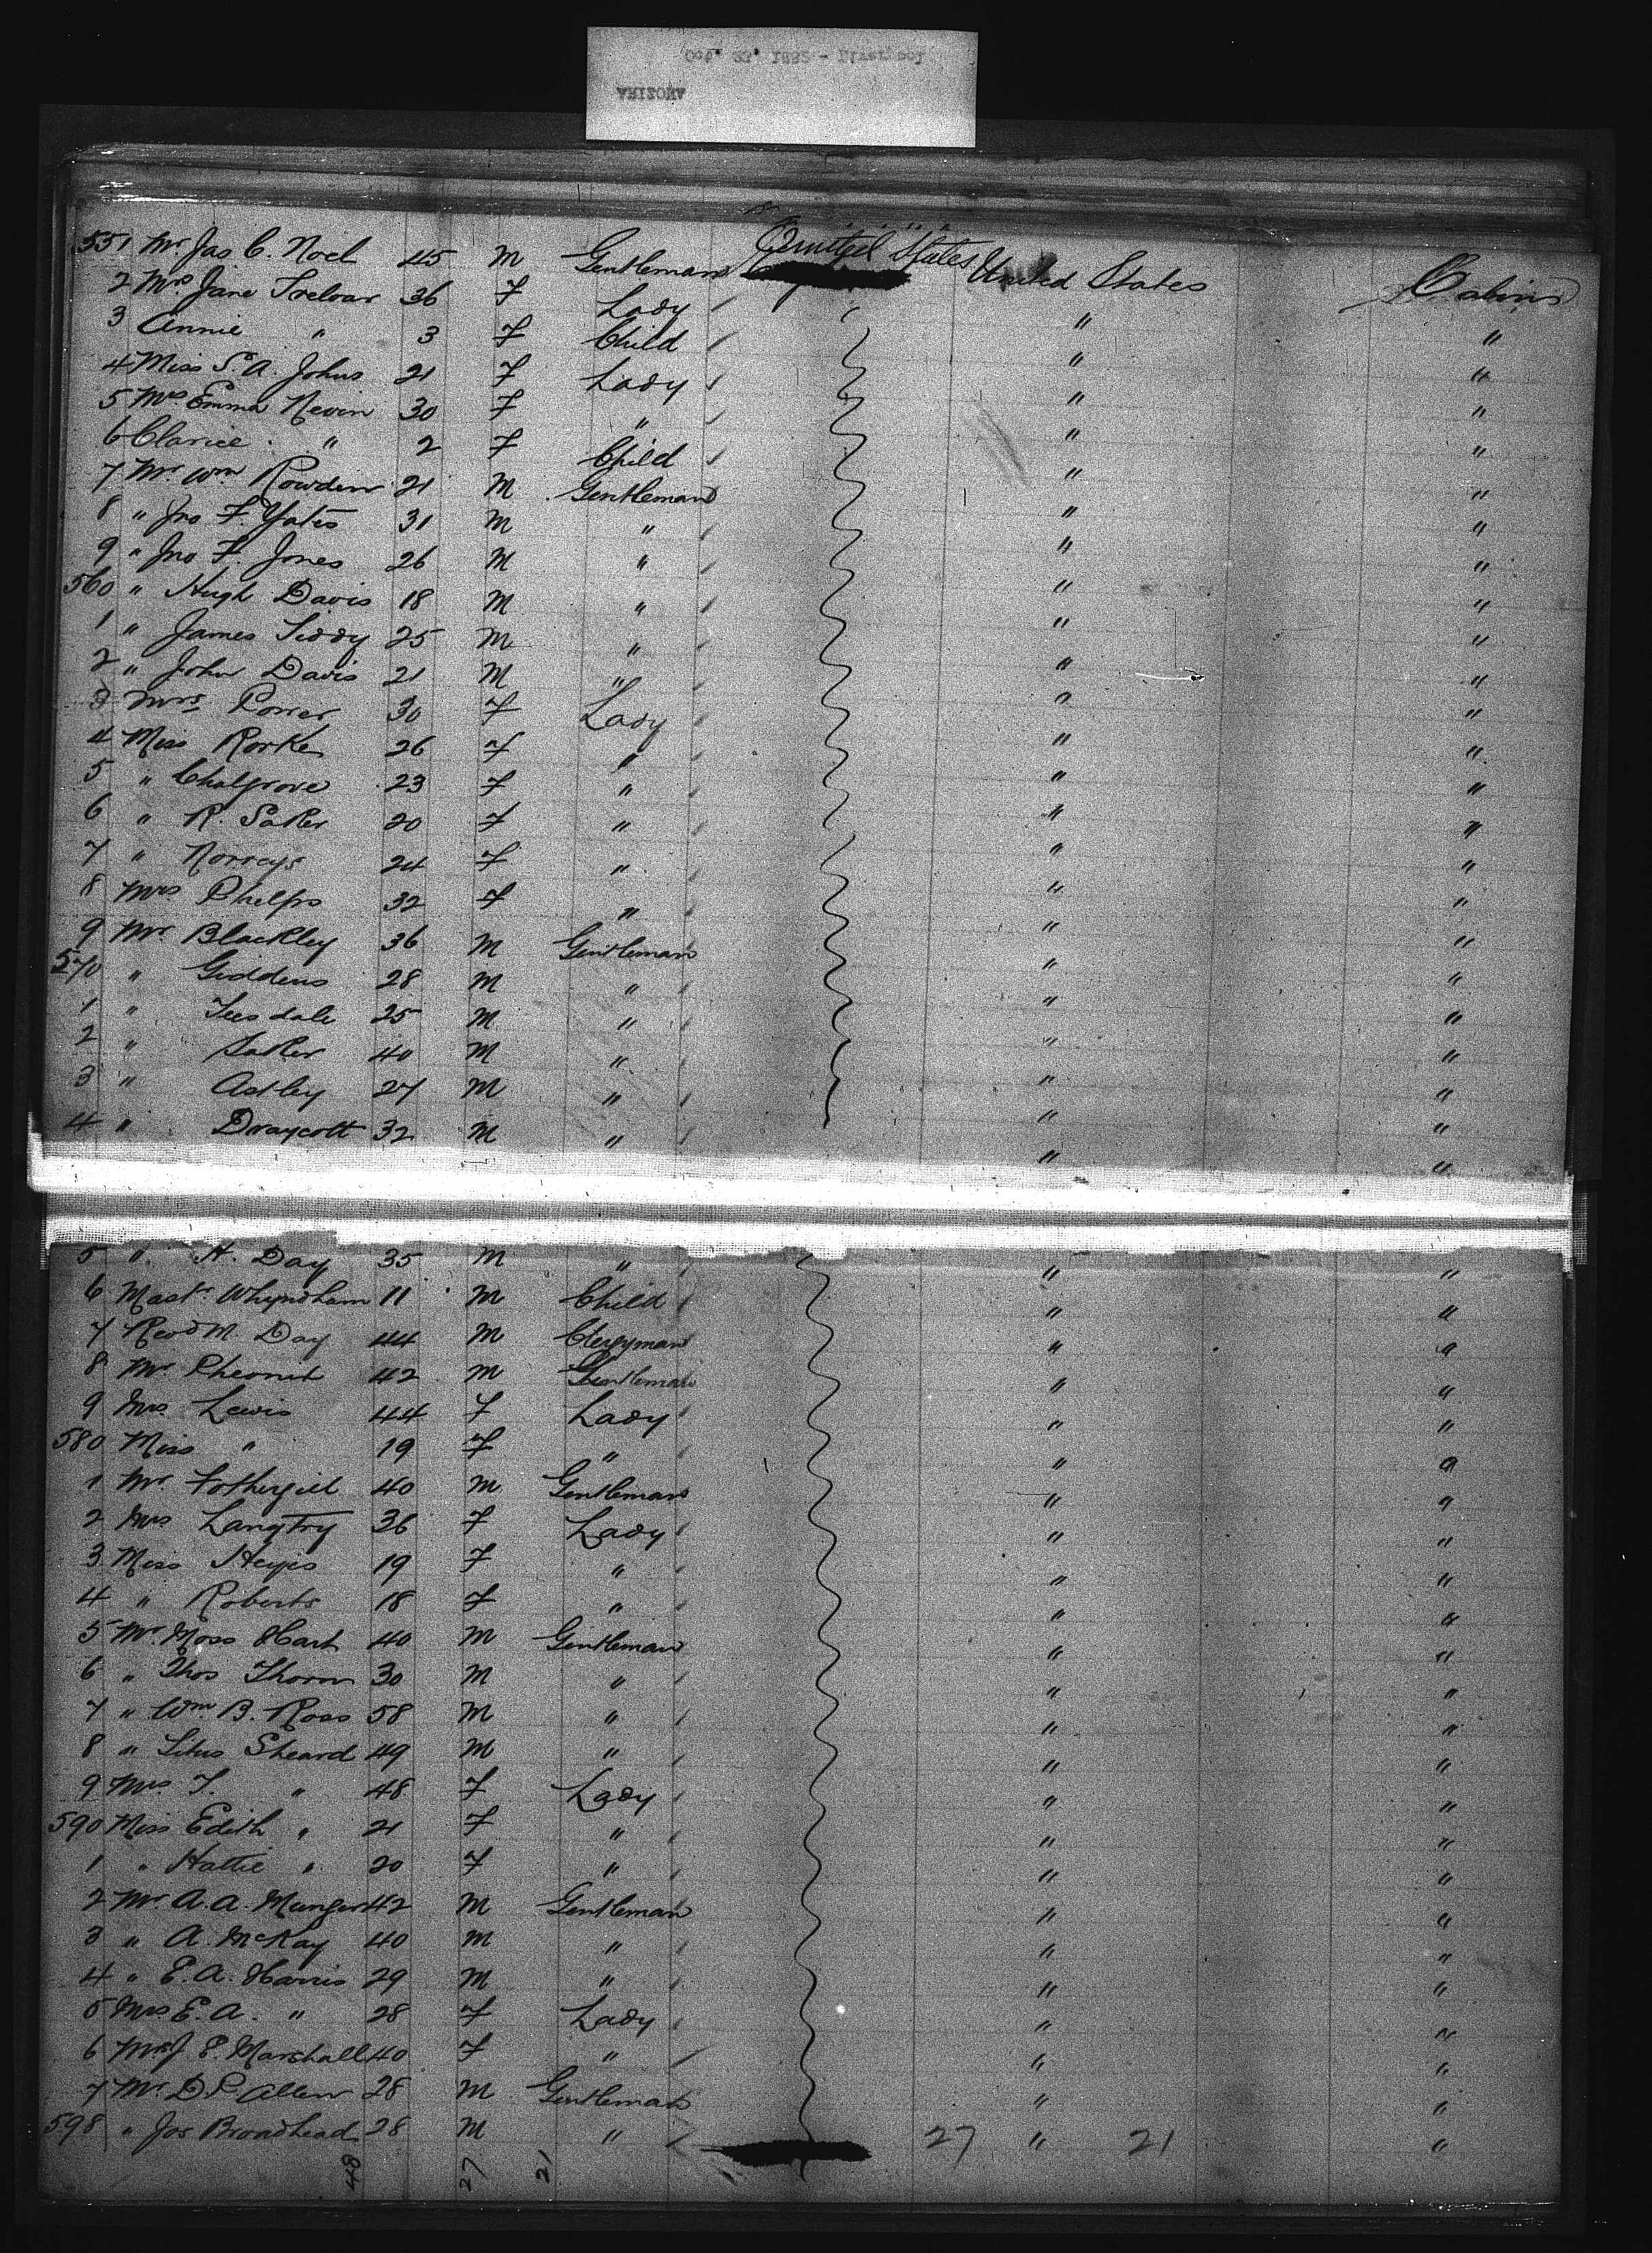 ARIZONA
Oct. 23, 1882 - Liverpool
United States
551 Mr. Jas C. Noel 45 M Gentleman United States Cabin
2 Mrs Jane Treloar 36 F Lady " "
3 Annie " 3 F Child " "
4 Miss S. A. Johns 21 F Lady " "
5 Mrs Emma Nevin 30 F " " "
6 Clarice " 2 F Child " "
7 Mr. Wm Rowden 21 M Gentleman " "
8 " Jno F. Yates 31 M " " "
9 " Jno F. Jones 26 M " " "
560 " Hugh Davis 18 M " " "
1 " James Tiddy 25 M " " "
2 " John Davis 21 M " " "
3 Mrs Power 30 F Lady " "
4 Miss Rorke 26 F " " "
5 " Chalgrove 23 F " " "
6 " R. Saker 20 F " " "
7 " Norreys 24 F " " "
8 Mrs Phelps 32 F " " "
9 Mr. Blackley 36 M Gentleman " "
570 " Giddens 28 M " " "
1 " Teesdale 25 M " " "
2 " Saker 40 M " " "
3 " Astley 27 M " " "
4 " Draycott 32 M " " "
5 " H. Day 35 M " " "
6 Mastr. Whyndham 11 M Child " "
7 Revd M. Day 44 M Clergyman " "
8 Mr. 42 M Gentleman " "
9 Mrs. Lewis 44 F Lady " "
580 Miss " 19 F " " "
1 Mr. Fothergill 40 M Gentleman " "
2 Mrs Langtry 36 F Lady " "
3 Miss 19 F " " "
4 " Roberts 18 F " " "
5 Mr. Moss Hart 40 M Gentleman " "
6 " Thos Thorn 30 M " " "
7 " Wm B. Ross 58 M " " "
8 " Titus Sheard 49 M " " "
9 Mrs. T. " 48 F Lady " "
590 Miss Edith " 21 F " " "
1 " Hattie " 20 F " " "
2 Mr. A. A. Munger 42 M Gentleman " "
3 " A. McKay 40 M " " "
4 " E. A. Harris 29 M " " "
5 Mrs. E. A. " 28 F Lady " "
6 Mrs J. E. Marshall 40 F " " "
7 Mr. D. P. Allen 28 M Gentleman " "
598 " Jos Broadhead 28 M " 27 " 21 "
48 27 21